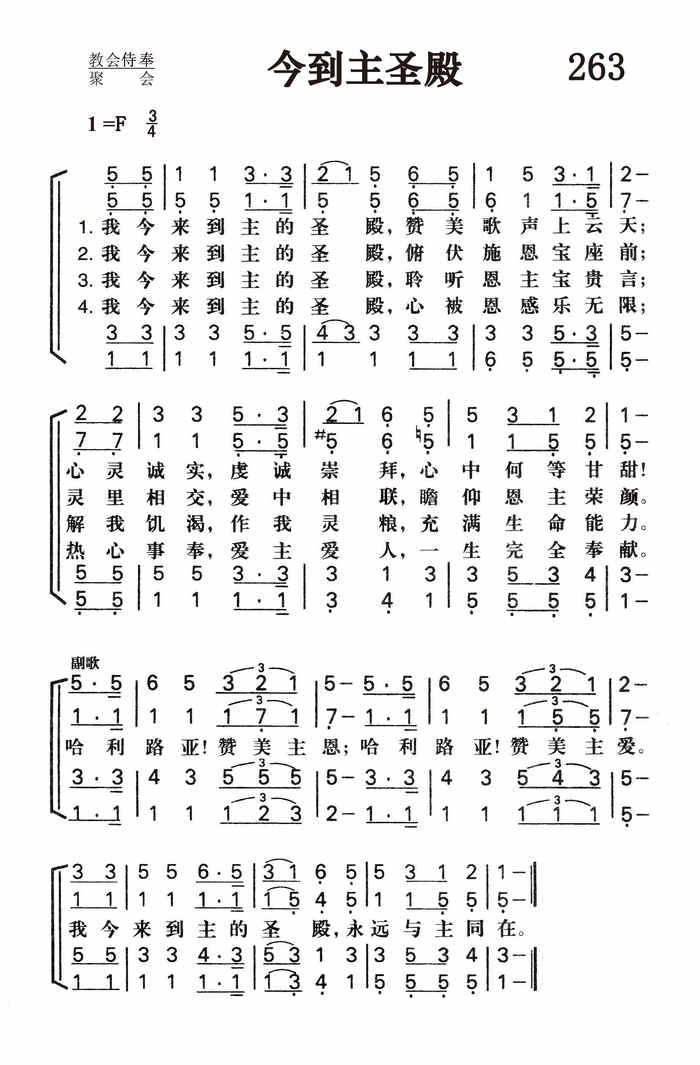 教会侍奉
聚 会
今到主圣殿 263
1=F 3/4
5 5 | 1 1 3·3 | 2 1 5 6 5 | 1 5 3·1 | 2-
5 5 | 5 5 1·1 | 5 5 6 5 | 6 1 1·5 | 7-
1. 我今来到主的圣殿,赞美歌声上云天;
2. 我今来到主的圣殿,俯伏施恩宝座前;
3. 我今来到主的圣殿,聆听恩主宝贵言;
4. 我今来到主的圣殿,心被恩感乐无限;
3 3 | 3 3 5·5 | 4 3 3 1 1 | 3 3 5·3 | 5-
1 1 | 1 1 1·1 | 1 1 1 1 | 6 5 5·5 | 5-
2 2 | 3 3 5·3 | 2 1 6 5 | 5 3 1 2 | 1-
7 7 | 1 1 5·5 | #5 6 ♮5 | 1 1 5 5 | 5-
心灵诚实,虔诚崇拜,心中何等甘甜!
灵里相交,爱中相联,瞻仰恩主荣颜。
解我饥渴,作我灵粮,充满生命能力。
热心事奉,爱主爱人,一生完全奉献。
5 5 | 5 5 3·3 | 3 1 3 | 3 5 3 4 | 3-
5 5 | 1 1 1·1 | 3 4 1 | 5 5 5 5 | 1-
副歌
5·5 | 6 5 3 2 1 | 5- 5·5 | 6 5 3 2 1 | 2-
1·1 | 1 1 1 7 1 | 7- 1·1 | 1 1 1 5 5 | 7-
哈利路亚!赞美主恩;哈利路亚!赞美主爱。
3·3 | 4 3 5 5 5 | 5- 3·3 | 4 3 5 4 3 | 5-
1·1 | 1 1 1 2 3 | 2- 1·1 | 1 1 1 1 1 | 5-
3 3 | 5 5 6·5 | 3 1 6 5 | 5 3 1 2 | 1-
1 1 | 1 1 1·1 | 1 5 4 5 | 1 1 5 5 | 5-
我今来到主的圣殿,永远与主同在。
5 5 | 3 3 4·3 | 5 3 1 3 | 3 5 3 4 | 3-
1 1 | 1 1 1·1 | 1 3 4 1 | 5 5 5 5 | 1-